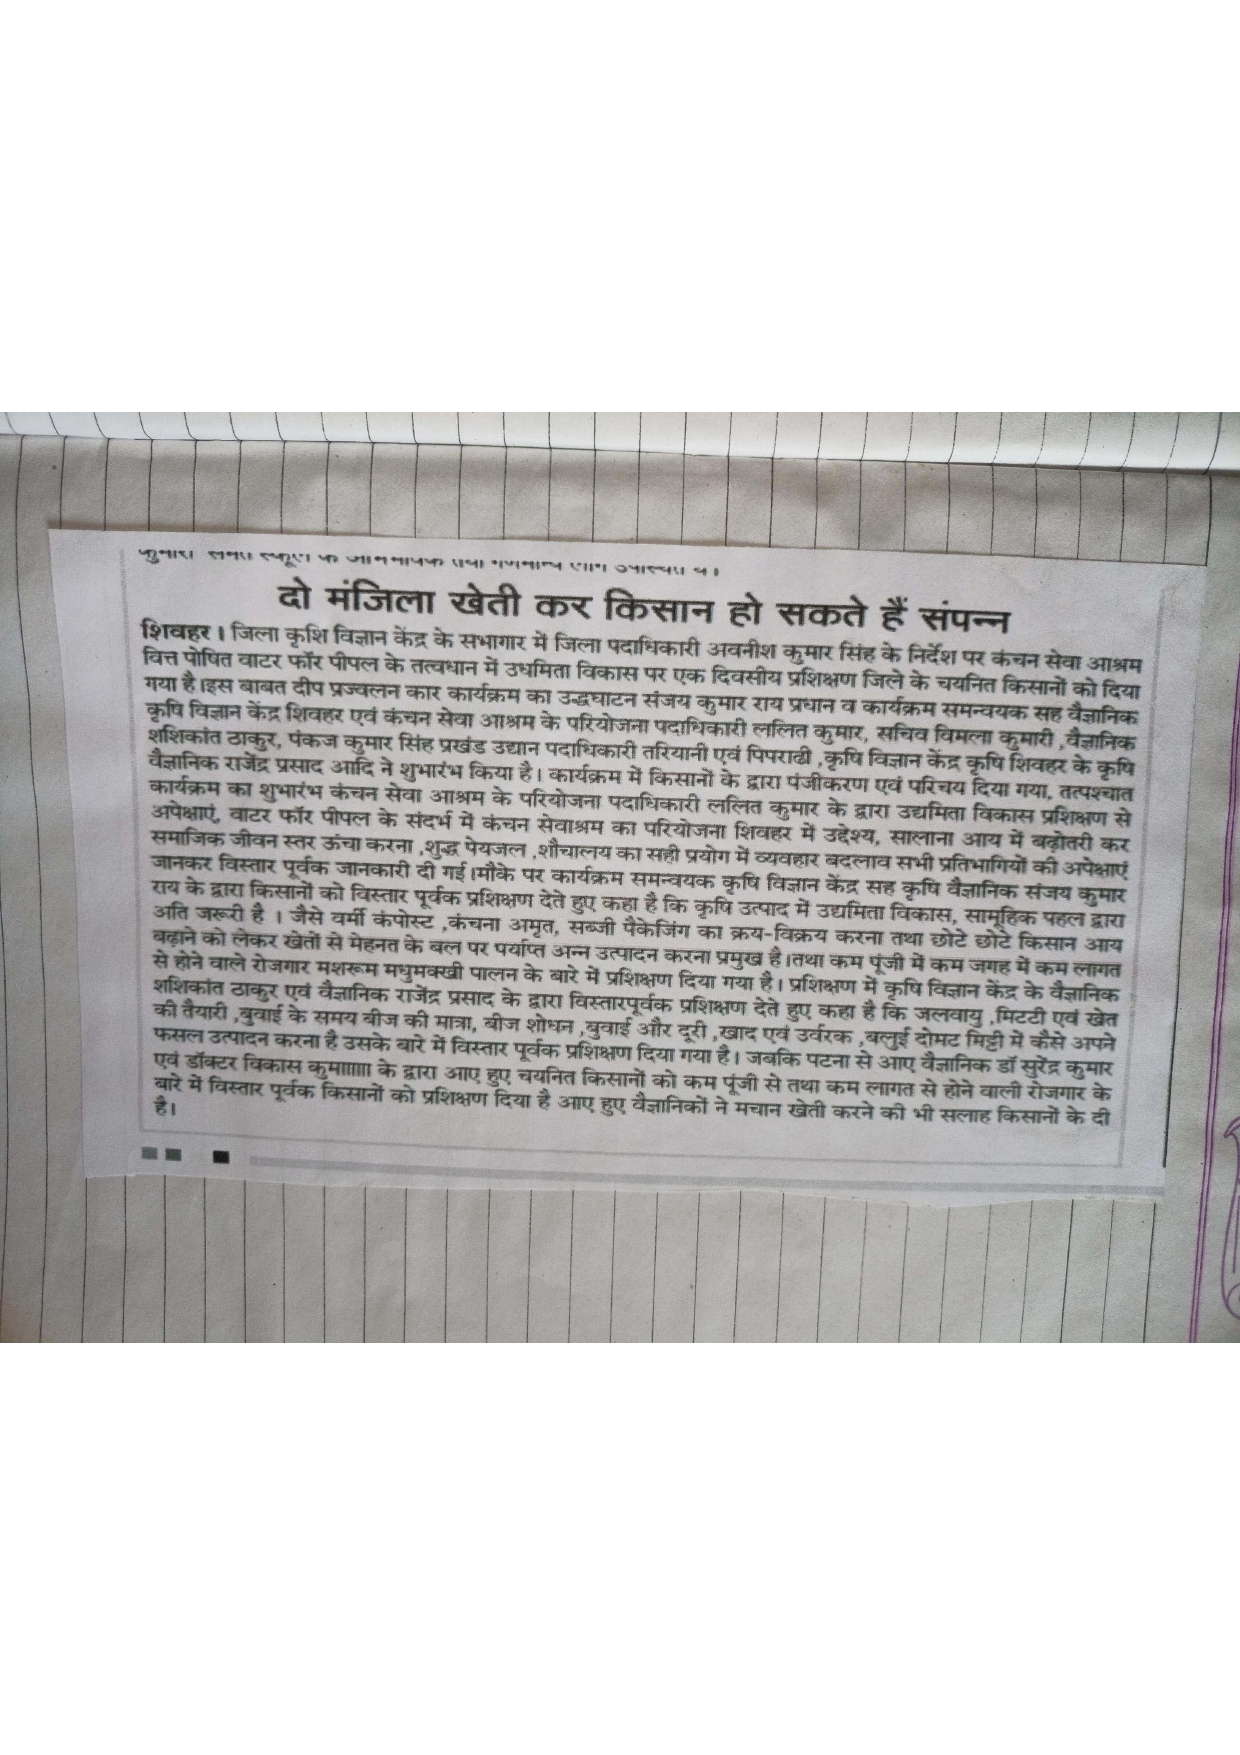 कुमारी समेत स्कूल के अभिभावक तथा गणमान्य लोग उपस्थित थे।
दो मंजिला खेती कर किसान हो सकते हैं संपन्न
शिवहर। जिला कृशि विज्ञान केंद्र के सभागार में जिला पदाधिकारी अवनीश कुमार सिंह के निर्देश पर कंचन सेवा आश्रम
वित्त पोषित वाटर फॉर पीपल के तत्वधान में उधमिता विकास पर एक दिवसीय प्रशिक्षण जिले के चयनित किसानों को दिया
गया है।इस बाबत दीप प्रज्वलन कार कार्यक्रम का उद्धघाटन संजय कुमार राय प्रधान व कार्यक्रम समन्वयक सह वैज्ञानिक
कृषि विज्ञान केंद्र शिवहर एवं कंचन सेवा आश्रम के परियोजना पदाधिकारी ललित कुमार, सचिव विमला कुमारी ,वैज्ञानिक
शशिकांत ठाकुर, पंकज कुमार सिंह प्रखंड उद्यान पदाधिकारी तरियानी एवं पिपराढी ,कृषि विज्ञान केंद्र कृषि शिवहर के कृषि
वैज्ञानिक राजेंद्र प्रसाद आदि ने शुभारंभ किया है। कार्यक्रम में किसानों के द्वारा पंजीकरण एवं परिचय दिया गया, तत्पश्चात
कार्यक्रम का शुभारंभ कंचन सेवा आश्रम के परियोजना पदाधिकारी ललित कुमार के द्वारा उद्यमिता विकास प्रशिक्षण से
अपेक्षाएं, वाटर फॉर पीपल के संदर्भ में कंचन सेवाश्रम का परियोजना शिवहर में उद्देश्य, सालाना आय में बढ़ोतरी कर
समाजिक जीवन स्तर ऊंचा करना ,शुद्ध पेयजल ,शौचालय का सही प्रयोग में व्यवहार बदलाव सभी प्रतिभागियों की अपेक्षाएं
जानकर विस्तार पूर्वक जानकारी दी गई।मौके पर कार्यक्रम समन्वयक कृषि विज्ञान केंद्र सह कृषि वैज्ञानिक संजय कुमार
राय के द्वारा किसानों को विस्तार पूर्वक प्रशिक्षण देते हुए कहा है कि कृषि उत्पाद में उद्यमिता विकास, सामूहिक पहल द्वारा
अति जरूरी है । जैसे वर्मी कंपोस्ट ,कंचना अमृत, सब्जी पैकेजिंग का क्रय-विक्रय करना तथा छोटे छोटे किसान आय
बढ़ाने को लेकर खेतों से मेहनत के बल पर पर्याप्त अन्न उत्पादन करना प्रमुख है।तथा कम पूंजी में कम जगह में कम लागत
से होने वाले रोजगार मशरूम मधुमक्खी पालन के बारे में प्रशिक्षण दिया गया है। प्रशिक्षण में कृषि विज्ञान केंद्र के वैज्ञानिक
शशिकांत ठाकुर एवं वैज्ञानिक राजेंद्र प्रसाद के द्वारा विस्तारपूर्वक प्रशिक्षण देते हुए कहा है कि जलवायु ,मिटटी एवं खेत
की तैयारी ,बुवाई के समय बीज की मात्रा, बीज शोधन ,बुवाई और दूरी ,खाद एवं उर्वरक ,बलुई दोमट मिट्टी में कैसे अपने
फसल उत्पादन करना है उसके बारे में विस्तार पूर्वक प्रशिक्षण दिया गया है। जबकि पटना से आए वैज्ञानिक डॉ सुरेंद्र कुमार
एवं डॉक्टर विकास के द्वारा आए हुए चयनित किसानों को कम पूंजी से तथा कम लागत से होने वाली रोजगार के
बारे में विस्तार पूर्वक किसानों को प्रशिक्षण दिया है आए हुए वैज्ञानिकों ने मचान खेती करने की भी सलाह किसानों के दी
है।